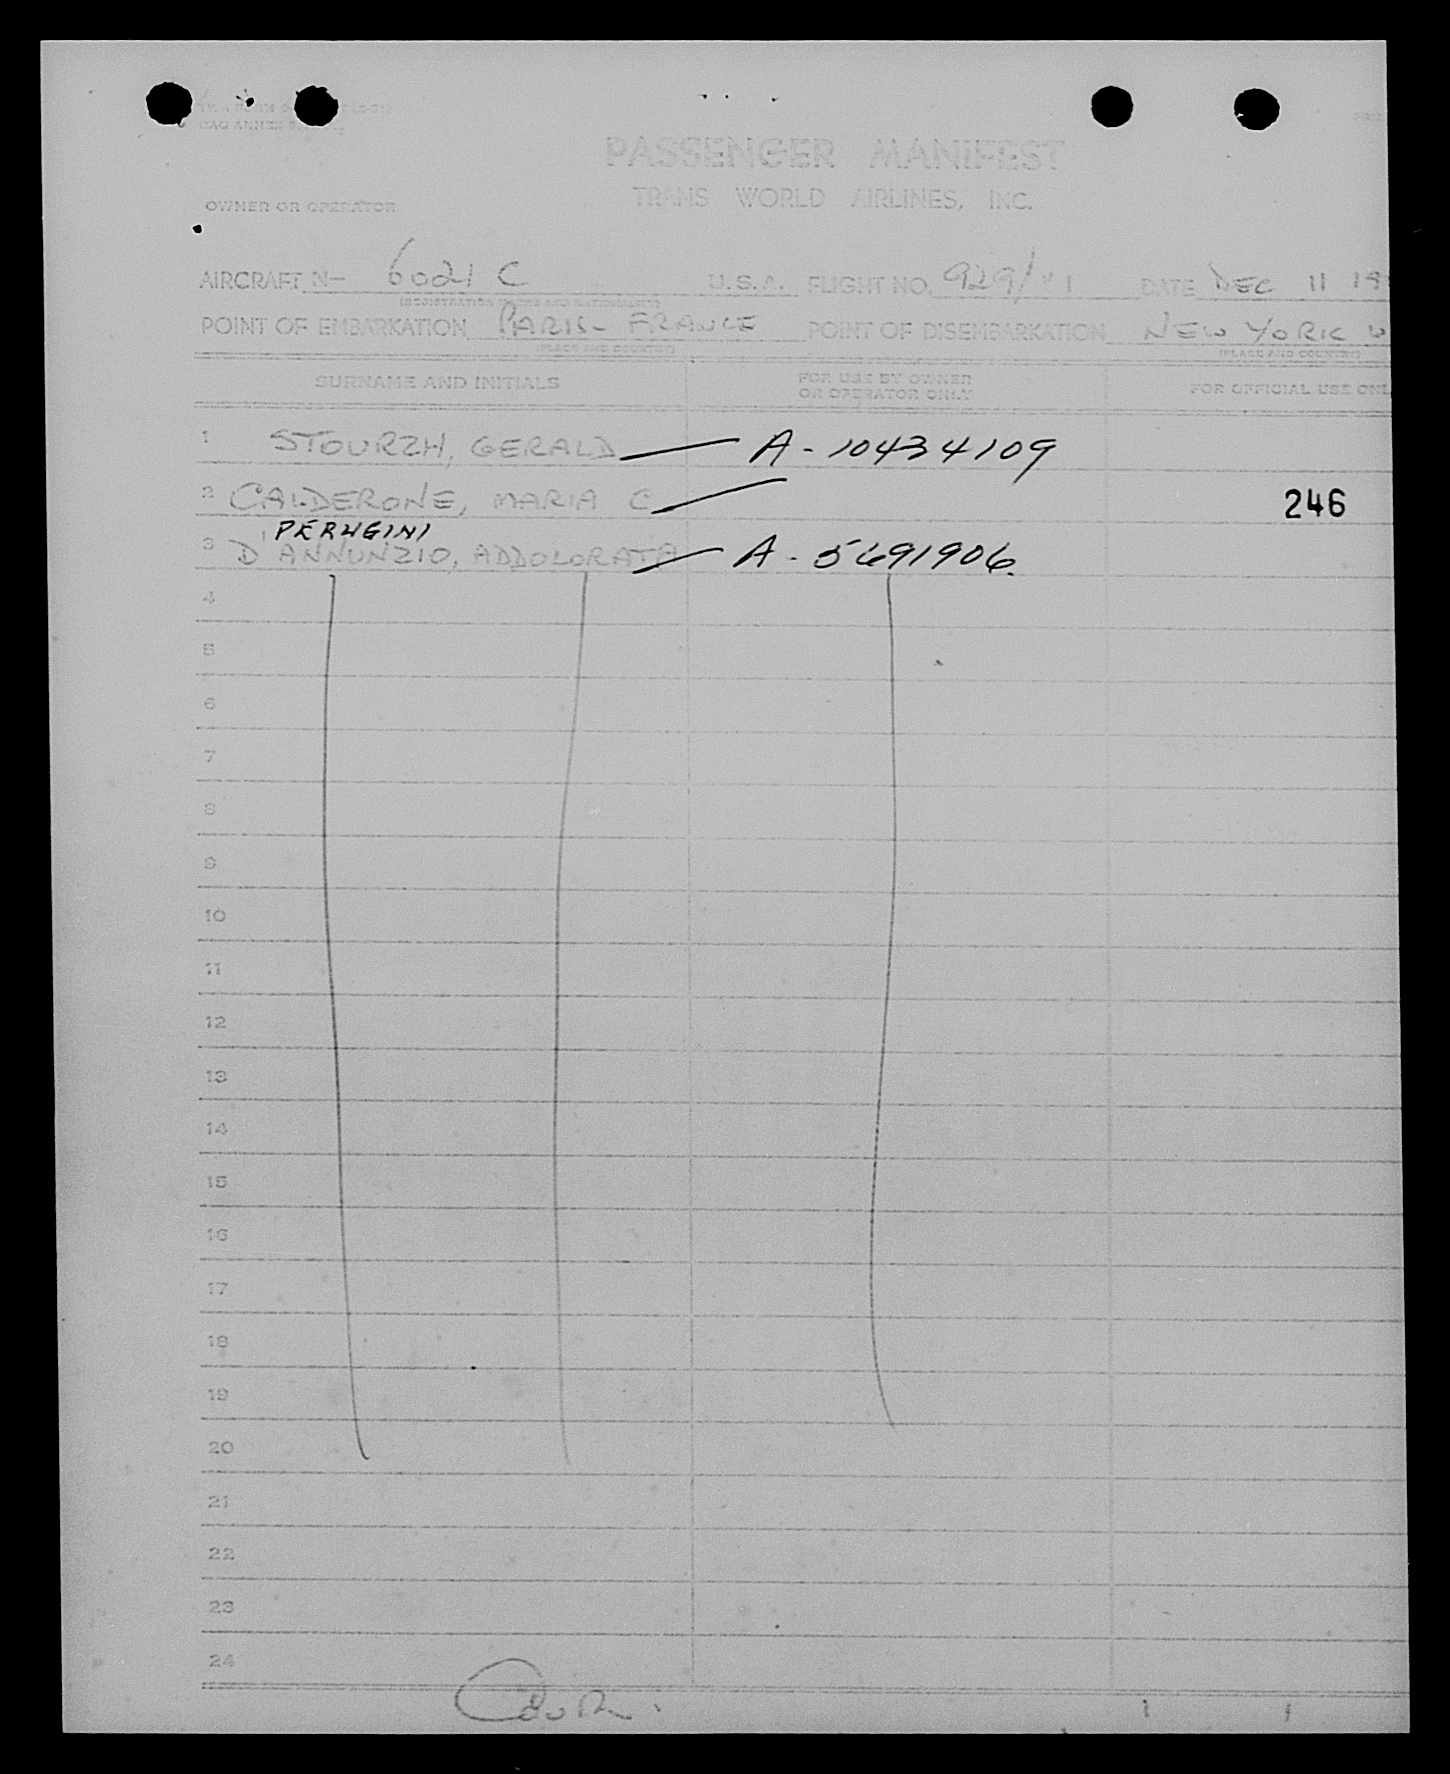 ICAO ANNEX 9
PASSENGER MANIFEST
TRANS WORLD AIRLINES, INC.
OWNER OR OPERATOR
AIRCRAFT N- 6021 C U.S.A. FLIGHT NO. 929/ DATE DEC 11
(REGISTRATION MARKS AND NATIONALITY)
POINT OF EMBARKATION PARIS - FRANCE POINT OF DISEMBARKATION NEW YORK U
(PLACE AND COUNTRY) (PLACE AND COUNTRY)
SURNAME AND INITIALS FOR USE BY OWNER OR OPERATOR ONLY FOR OFFICIAL USE ONL
1 STOURZH, GERALD A-10434109
2 CALDERONE, MARIA C 246
PERUGINI
3 D'ANNUNZIO, ADDOLORATA A-5691906
4
5
6
7
8
9
10
11
12
13
14
15
16
17
18
19
20
21
22
23
24